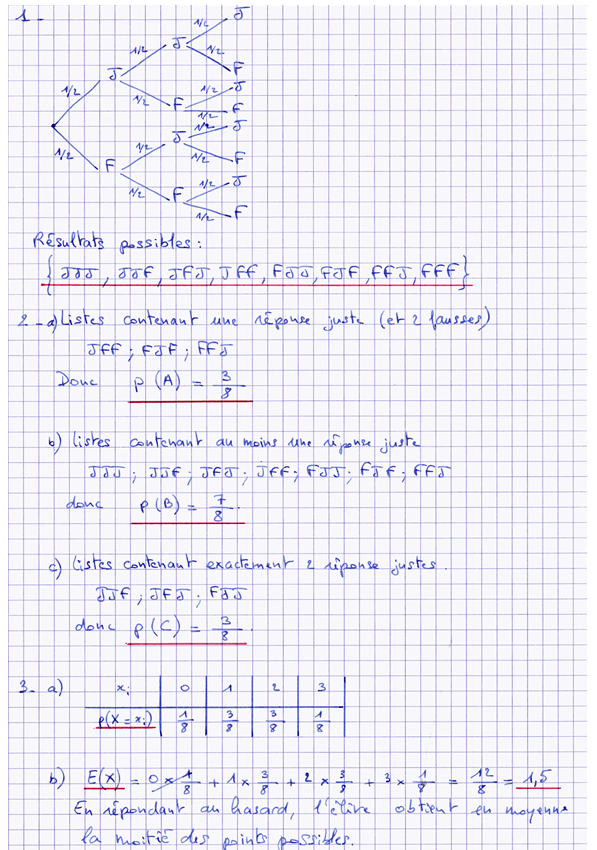 1-
1/2 J 1/2 J 1/2 J
1/2 F
1/2 F 1/2 J
1/2 F
1/2 F 1/2 J 1/2 J
1/2 F
1/2 F 1/2 J
1/2 F
Résultats possibles :
{ JJJ, JJF, JFJ, JFF, FJJ, FJF, FFJ, FFF}
2-a) Listes contenant une réponse juste (et 2 fausses)
JFF ; FJF ; FFJ
Donc p(A) = 3/8
b) listes contenant au moins une réponse juste
JJJ ; JJF ; JFJ ; JFF ; FJJ ; FJF ; FFJ
donc p(B) = 7/8
c) listes contenant exactement 2 réponse justes.
JJF ; JFJ ; FJJ
donc p(C) = 3/8.
3- a) xi 0 1 2 3
p(X = xi) 1/8 3/8 3/8 1/8
b) E(X) = 0 × 1/8 + 1 × 3/8 + 2 × 3/8 + 3 × 1/8 = 12/8 = 1,5
En répondant au hasard, l'élève obtient en moyenne
la moitié des points possibles.